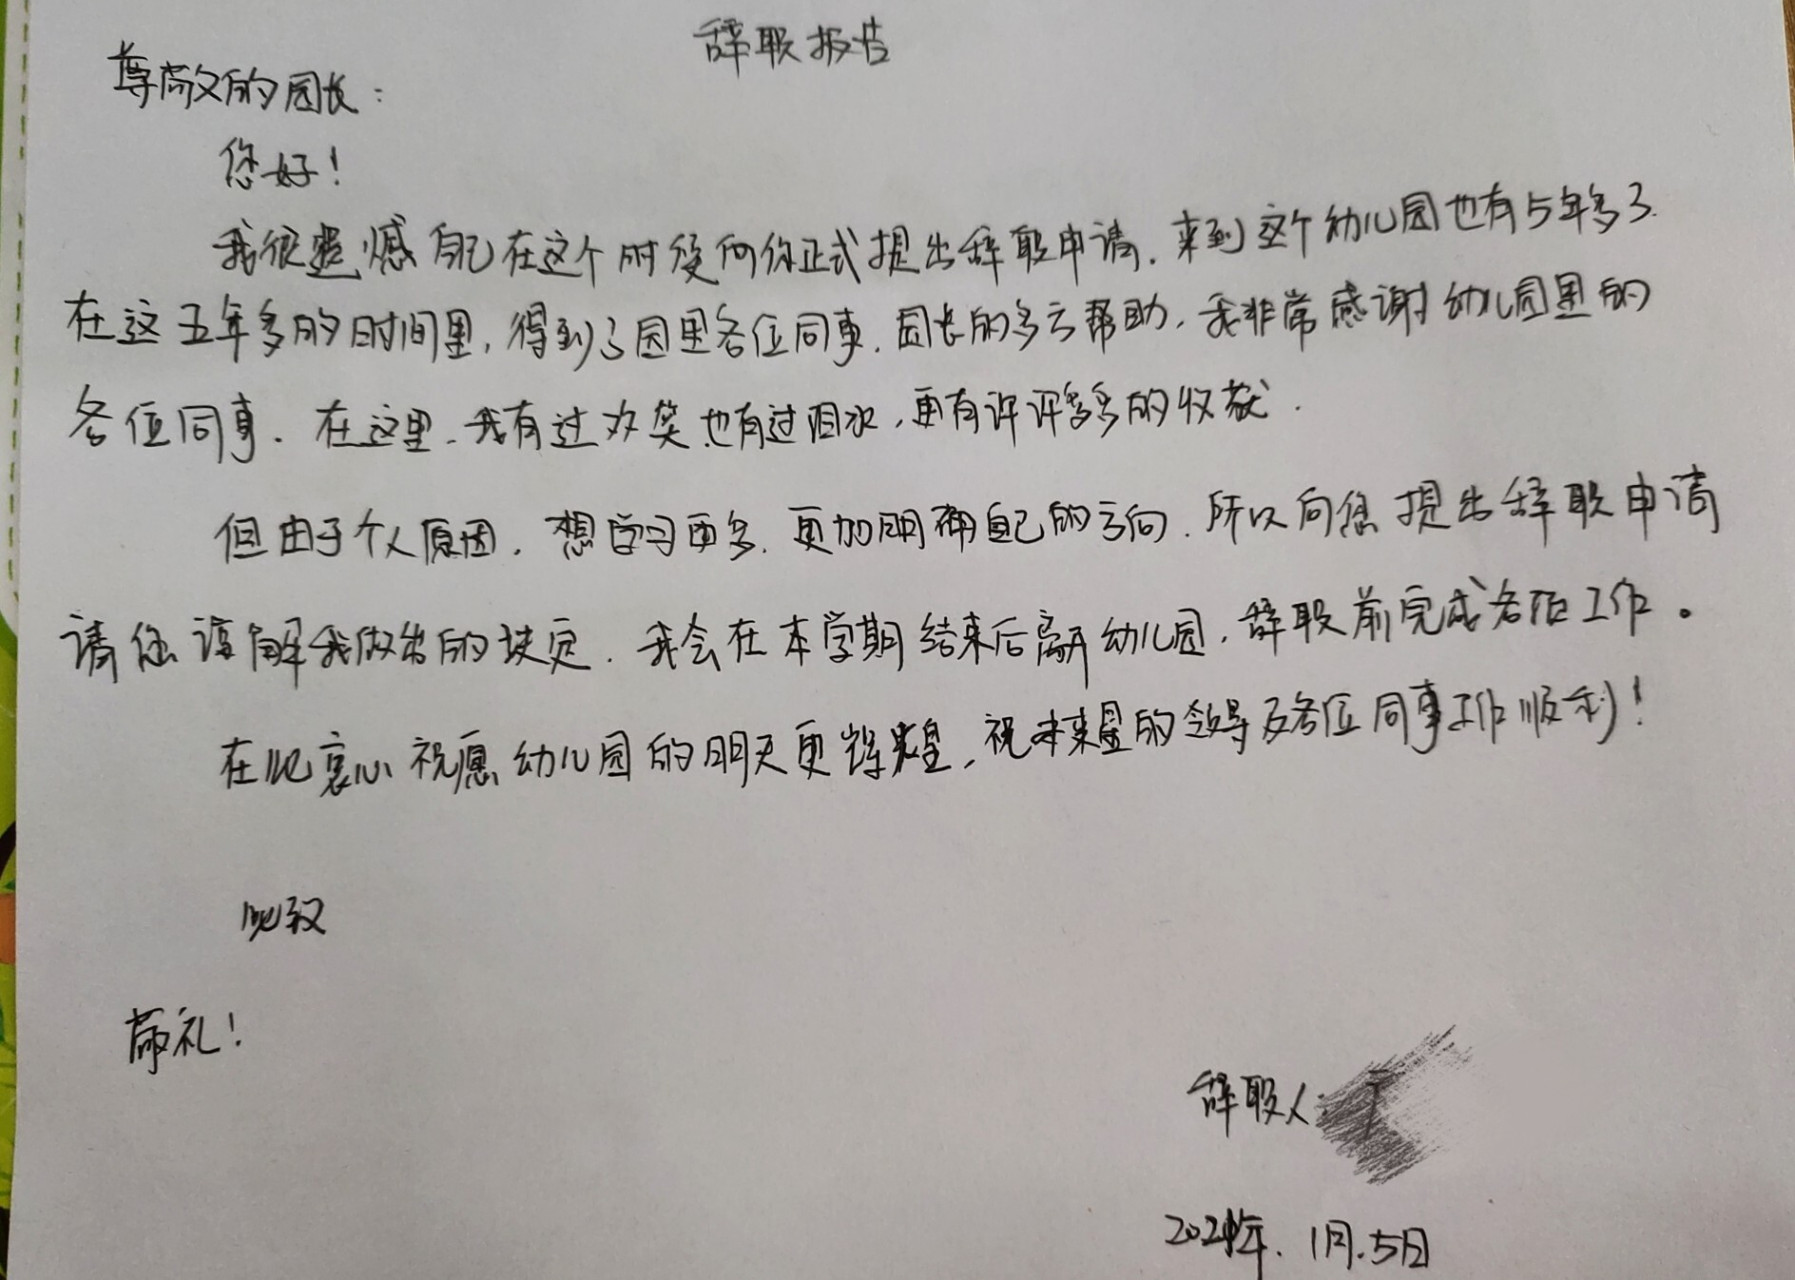 辞职报告
尊敬的园长：
您好！
我很遗憾自己在这个时段向你正式提出辞职申请.来到这个幼儿园也有5年多了.
在这五年多的时间里,得到了园里各位同事.园长的多方帮助,我非常感谢幼儿园里的
各位同事.在这里、我有过欢笑也有过泪水,更有许许多多的收获.
但由于个人原因,想学习更多.更加明确自己的方向.所以向您提出辞职申请
请您谅解我做出的决定.我会在本学期结束后离开幼儿园,辞职前完成各位工作。
在此衷心祝愿幼儿园的明天更辉煌,祝未来星的领导及各位同事工作顺利！
此致
敬礼！
辞职人:
年.1月.5日